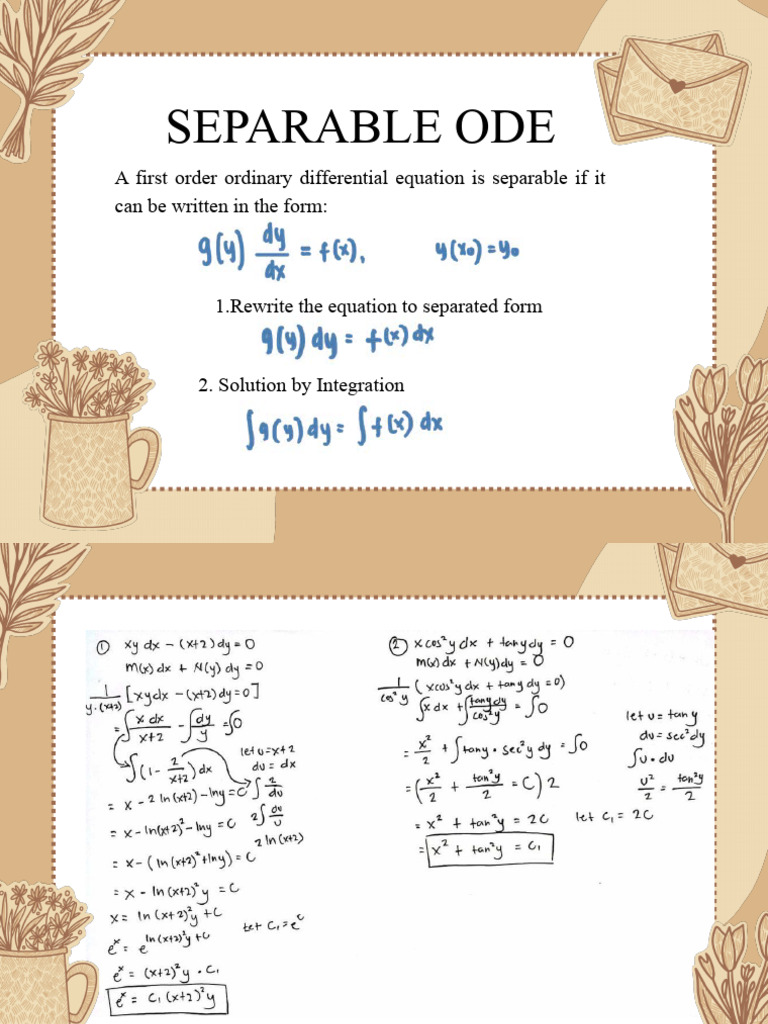 SEPARABLE ODE
A first order ordinary differential equation is separable if it
can be written in the form:
g(y) dy/dx = f(x), y(x₀) = y₀
1.Rewrite the equation to separated form
g(y) dy = f(x) dx
2. Solution by Integration
∫g(y) dy = ∫f(x) dx
① xy dx - (x+2) dy = 0
M(x) dx + N(y) dy = 0
1/(y·(x+2)) [xy dx - (x+2) dy = 0]
= ∫ x dx/(x+2) - ∫ dy/y = ∫0
∫(1 - 2/(x+2)) dx
let u = x+2
du = dx
= x - 2 ln(x+2) - ln y = C
∫ 2/du
= x - ln(x+2)² - ln y = C
2∫ du/u
2 ln(x+2)
= x - (ln(x+2)² + ln y) = C
= x - ln(x+2)² y = C
x = ln(x+2)² y + C
let C₁ = e^c
e^x = e^(ln(x+2)² y + C)
e^x = (x+2)² y · C₁
e^x = C₁ (x+2)² y
② x cos² y dx + tan y dy = 0
M(x) dx + N(y) dy = 0
1/cos² y (x cos² y dx + tan y dy = 0)
∫x dx + ∫ tan y dy/cos² y = ∫0
= x²/2 + ∫ tan y · sec² y dy = ∫0
= (x²/2 + tan² y/2 = C) 2
= x² + tan² y = 2C let C₁ = 2C
= x² + tan² y = C₁
let u = tan y
du = sec² dy
∫u · du
u²/2 = tan² y/2